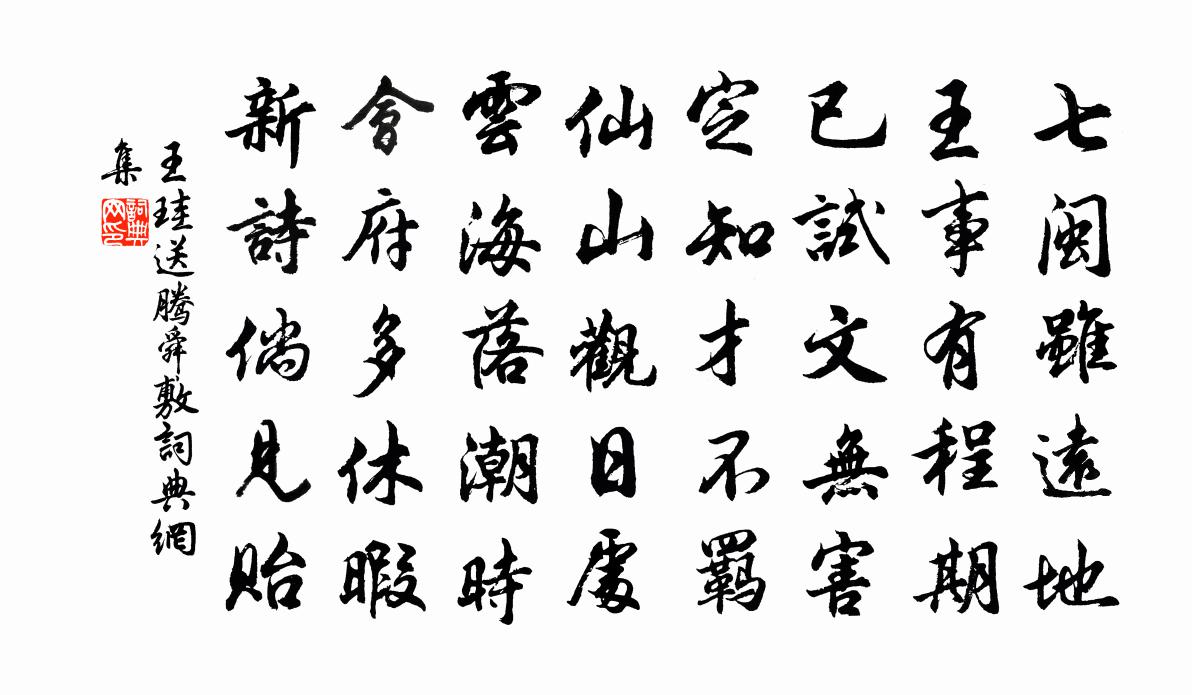 七閩雖遠地
王事有程期
已試文無害
定知才不羈
仙山觀日處
雲海落潮時
會府多休暇
新詩倘見貽
王珪送騰舜敷詞典網
集
詞典网印